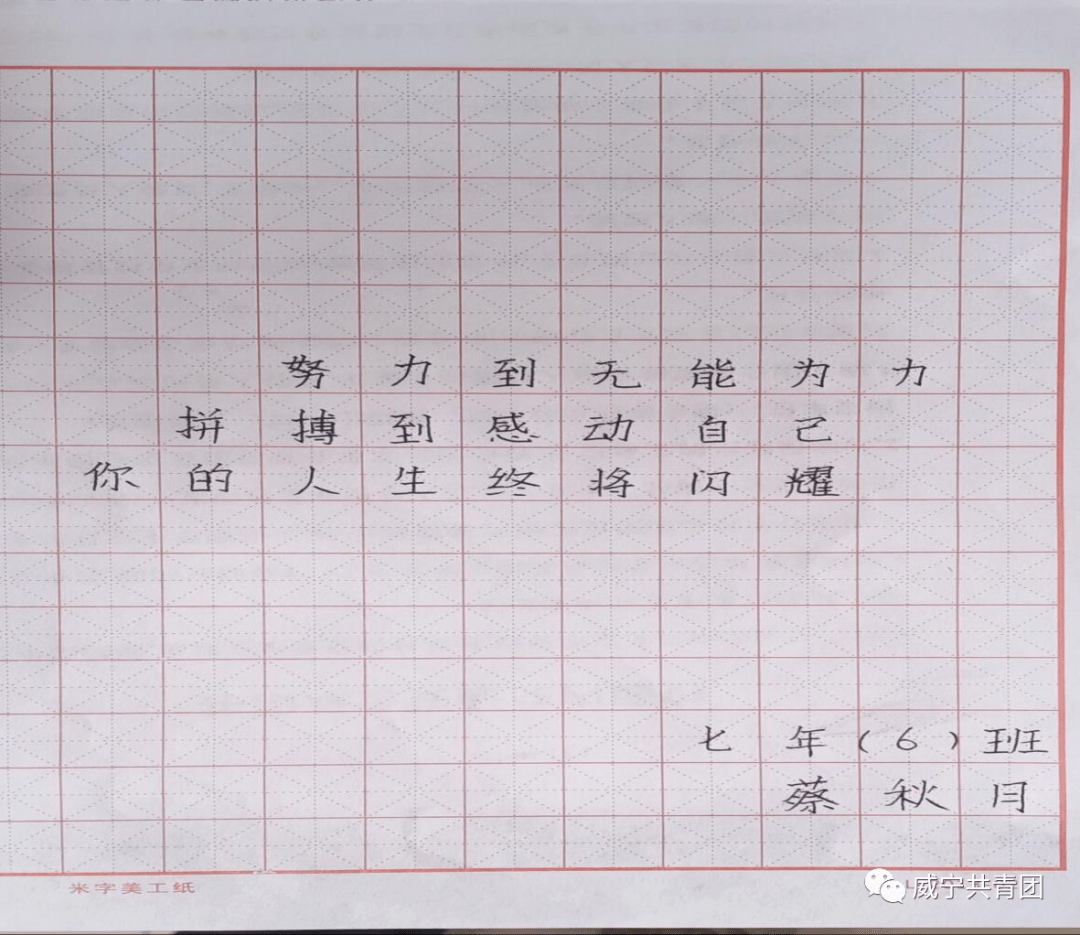 努力到无能为力
拼搏到感动自己
你的人生终将闪耀
七年(6)班
蔡秋月
米字美工纸
威宁共青团